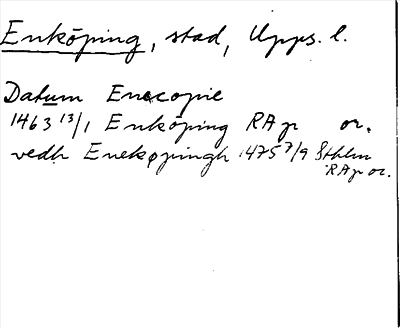 Enköping, stad, Upps. l.
Datum Enecopie
1463 13/1 Enköping RAp or.
vedh Enekøpingh 1475 7/9 Sthlm
RAp or.